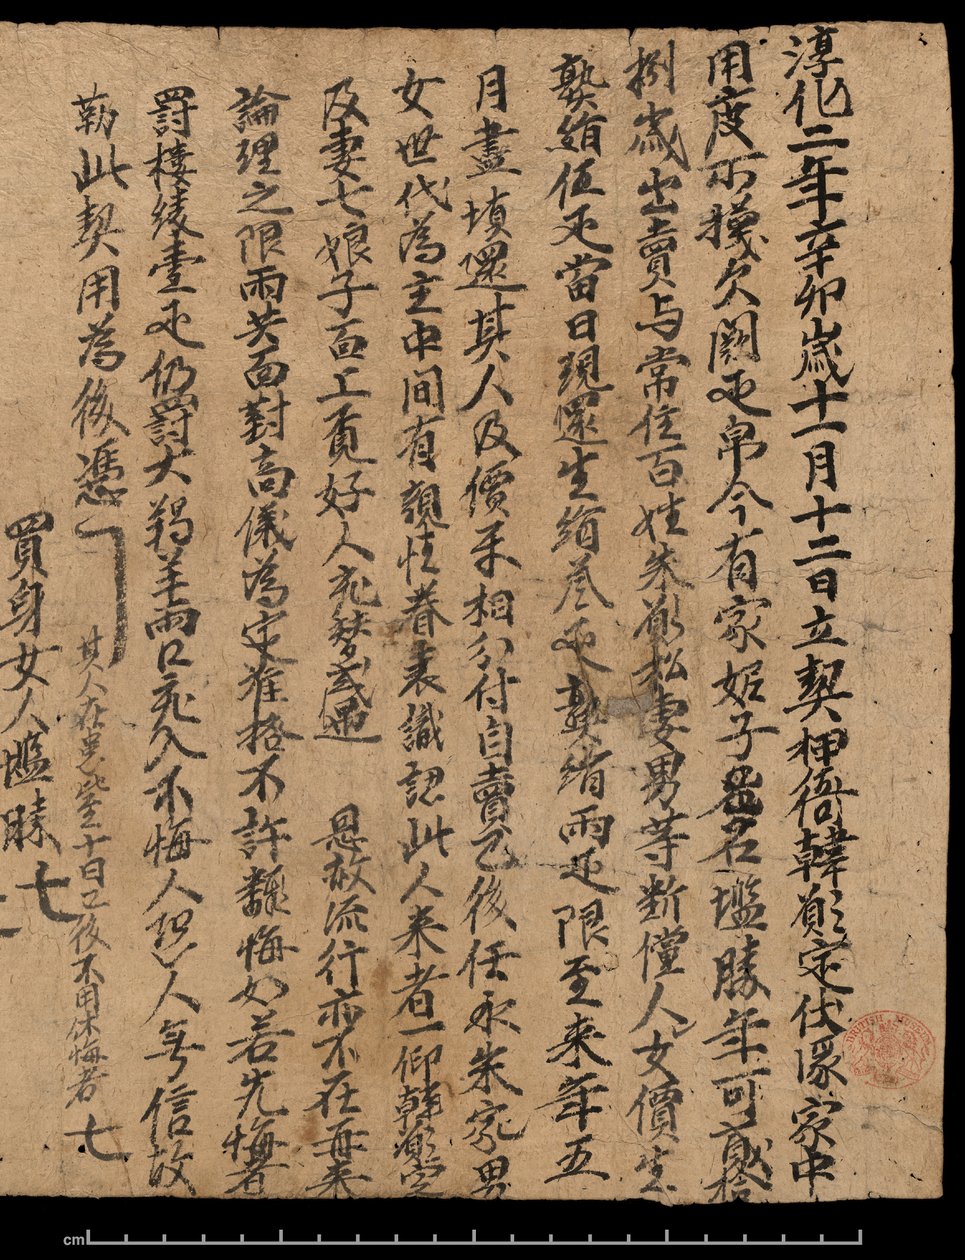 淳化二年辛卯歲十一月十二日立契押衙韓願定伏緣家中
用度不攙欠闕疋帛今有家妮子名㙮勝年可貳拾
捌歲出賣与常住百姓朱願松妻男等斷償人女價生
熟絹伍疋當日現還生絹叁疋熟絹兩疋限至來年五
月盡填還其人及價互相分付自賣已後任永朱家男
女世代為主中間有親情眷表識認此人來者一仰韓願定
及妻七娘子面上覓好人充替或遇 恩赦流行亦不在再來
論理之限兩共面對商儀為定准格不許翻悔如若先悔者
罰樓綾壹疋仍罰大羯羊兩口充入不悔人恐人無信故
勒此契用為後憑
其人在患比至十日已後不用休悔者 七
買身女人㙮勝 七